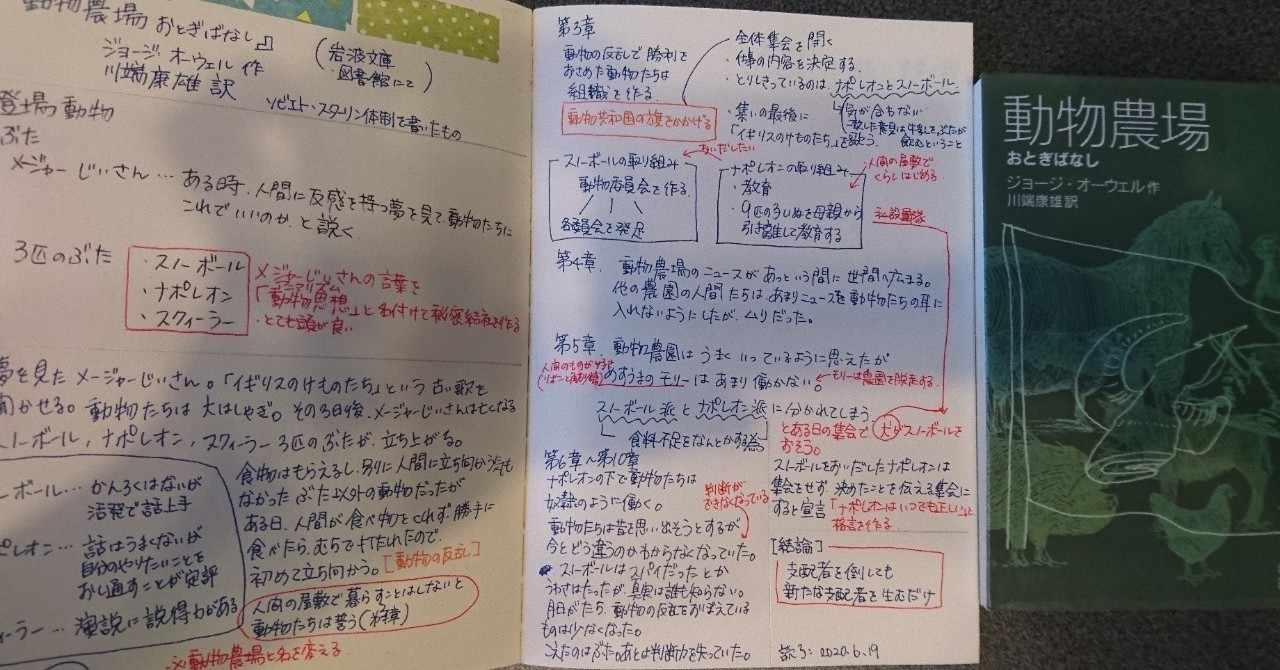 動物農場 おとぎばなし』
ジョージ・オーウェル 作
川端康雄 訳
(岩波文庫
・図書館にて)
ソビエト・スターリン体制を書いたもの
登場動物
ぶた
メージャーじいさん… ある時、人間に反感を持つ夢を見て、動物たちに
これでいいのか、と説く
3匹のぶた
・スノーボール
・ナポレオン
・スクィーラー
メージャーじいさんの言葉を
「動物思想」と名付けて秘密結社を作る
アニマリズム
・とても頭が良い
夢を見たメージャーじいさん。「イギリスのけものたち」という古い歌を
聞かせる。動物たちは大はしゃぎ。その3日後、メージャーじいさんは亡くなる
スノーボール、ナポレオン、スクィーラー 3匹のぶたが、立ち上がる。
ーボール… かんろくはないが
活発で話上手
ポレオン… 話はうまくないが
自分のやりたいことを
おし通すことが定評
ィーラー… 演説に説得力がある
食物はもらえるし、別に人間に立ち向かう気も
なかった ぶた以外の動物だったが
ある日、人間が食べ物をくれず勝手に
食べたら、むちで打たれたので
初めて立ち向かう。[動物の反乱]
人間の屋敷で暮らすことはしないと
動物たちは誓う
動物農場と名を変える
第3章
動物の反乱で勝利を
おさめた動物たちは
組織を作る
動物共和国の旗をかかげる
・全体集会を開く
・仕事の内容を決定する。
・とりしきっているのは、ナポレオンとスノーボール
気が合わない
・集いの最後に
「イギリスのけものたち」を歌う。
おいだしたい
スノーボールの取り組み
動物委員会を作る
各委員会を発足
ナポレオンの取り組み
・教育
・9匹の子いぬを母親から
引き離して教育する
人間の屋敷で
くらしはじめる
私設軍隊
第4章. 動物農場のニュースがあっという間に世間へ広まる。
他の農園の人間たちは、あまりニュースを動物たちの耳に
入れないようにしたが、ムリだった。
第5章. 動物農園はうまくいっているように思えたが
めすうまのモリーはあまり働かない。
モリーは農園を脱走する.
スノーボール派とナポレオン派に分かれてしまう
食料不足をなんとかする為
とある日の集会で犬がスノーボールを
おそう。
スノーボールをおいだしたナポレオンは
集会をせず、決めたことを伝える集会に
すると宣言「ナポレオンはいつでも正しい」と
格言を作る
第6章〜第10章
ナポレオンの下で動物たちは
奴隷のように働く。
判断が
できなくなっている
動物たちは昔を思い出そうとするが
今とどう違うのかもわからなくなっていた。
スノーボールはスパイだったとか
うわさはたったが、真実は誰も知らない。
月日がたち、動物の反乱をおぼえている
ものは少なくなった。
こえたのはぶた。あとは判断力を失っていた。
[結論]
支配者を倒しても
新たな支配者を生むだけ
2020.6.19
動物農場
おとぎばなし
ジョージ・オーウェル 作
川端康雄訳